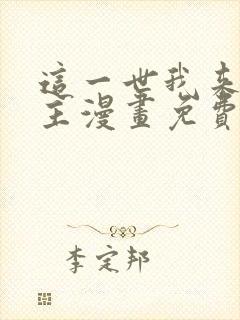 這一世我來
主漫畫免費
李定邦